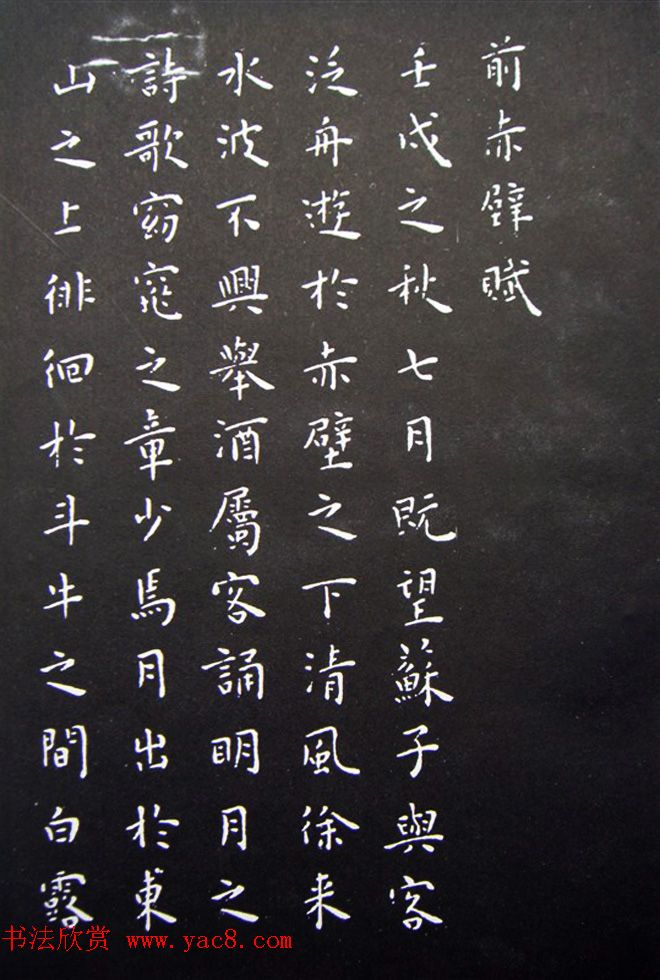 前赤壁賦
壬戌之秋七月既望蘇子與客
泛舟遊於赤壁之下清風徐来
水波不興舉酒屬客誦明月之
詩歌窈窕之章少焉月出於東
山之上徘徊於斗牛之間白露
书法欣赏 www.yac8.com